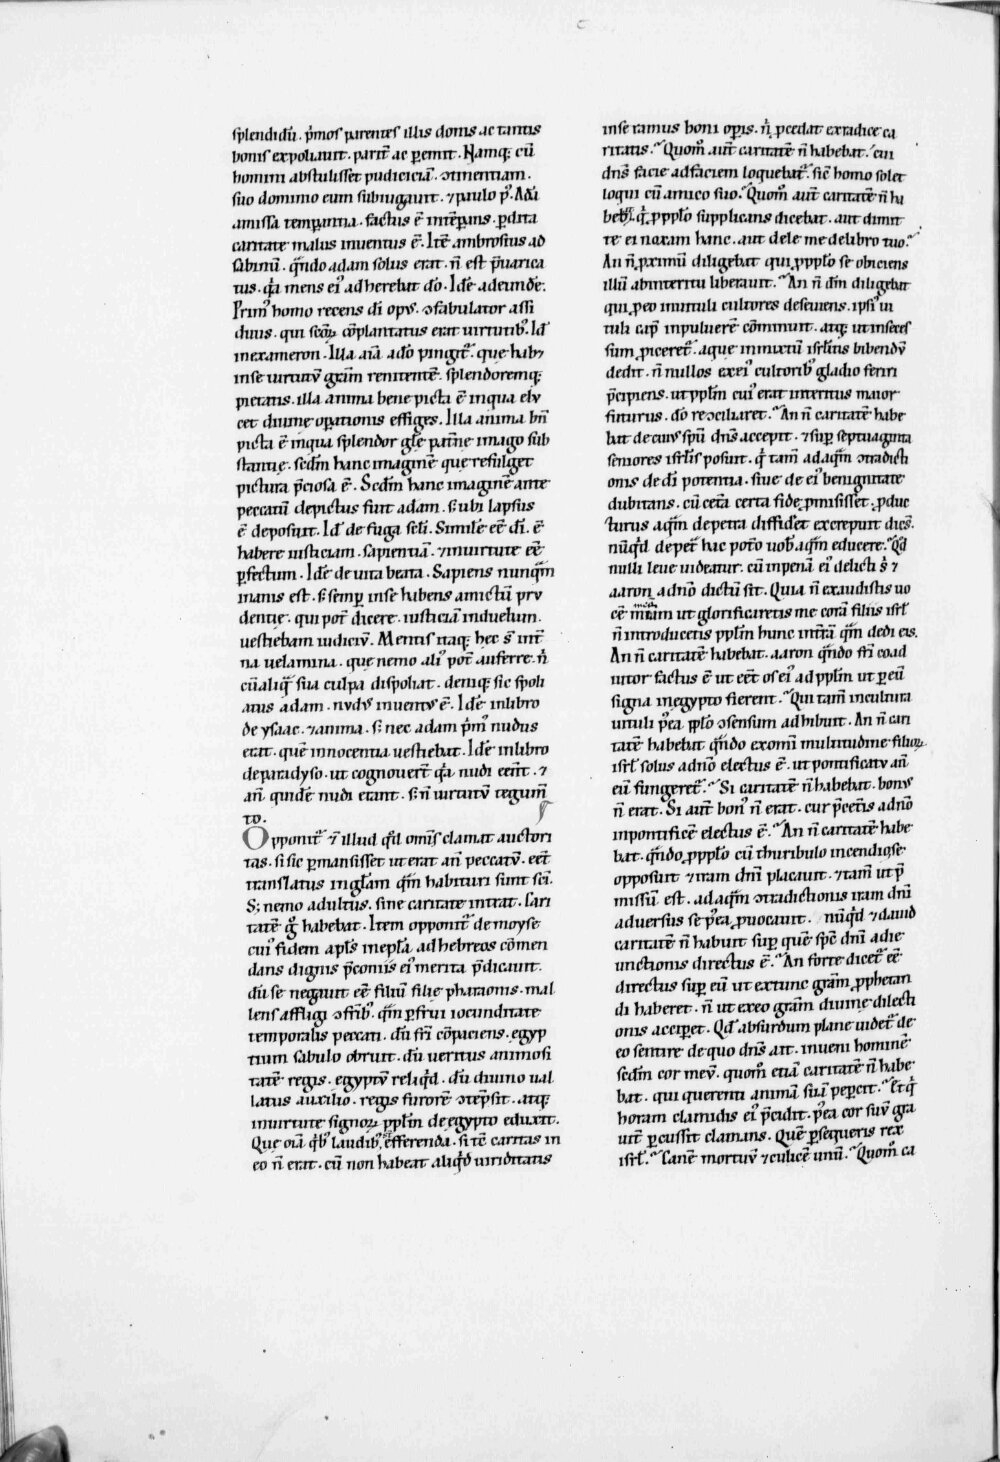 splendidū. p̄mos parentes illis donis ac tantis
bonis expoliauit. parit̄ ac peremit. Namq; cū
homini abstulisset pudiciciā. ɔtinentiam.
suo domino eum subiugauit. ⁊ paulo p̾. Adā
amissa temperantia. factus ē intēperans. perdita
caritate malus inuentus ē. Itē ambrosius ad
sabinū. qn̄do adam solus erat. n̄ est p̄uarica
tus. q̄a mens ei᾽ adherebat dō. Idē ad eundē.
Prim᾽ homo recens dī op᾽. ɔfabulator assi
duus. qui scōꝝ cōplantatus erat uirtutib᾽. Id̄
in exameron. Illa aīa a dō pingit᷑. que hab⁊
in se uirtutū grām renitentē. splendoremq;
pietatis. illa anima bene picta ē in qua elu
cet diuine oꝑationis effigies. Illa anima bn̄
picta ē in qua splendor gl̄e. patn̄e imago sub
stantie. sedm̄ hanc imaginē que refulget
pictura p̄ciosa ē. Sedm̄ hanc imaginē ante
peccatū depictus fuit adam. s; ubi lapsus
ē deposuit. Id̄ de fuga sc̄li. Similē eē dī. ē
habere iusticiam. sapientiā. ⁊ in uirtute eē
ꝑfectum. Idē de uita beata. Sapiens nunqm̄
inanis est. s; semꝑ in se habens amictū pru
dentie. qui pot̄ dicere. iusticiā induebam.
uestiebam iudiciū. Mentis itaq; hec s̄t int̄
na uelamina. que nemo ali᾽ pot̄ auferre. n̄
cū aliq̄ sua culpa dispoliat. deniq; sic spoli
atus adam. nudus inuentus ē. Idē in libro
de ysaac. ⁊ anima. s; nec adam p̄m᾽ nudus
erat. quē innocentia uestiebat. Idē in libro
de paradyso. ut cognouert̄ q̄a nudi eēnt. ⁊
an̄ quidē nudi erant. s; n̄ uirtutū tegum̄
to.
Opponit᷑ ⁊ illud q̄d om̄s clamat auctori
tas. si sic ꝑmansisset ut erat an̄ peccatū. eēt
translatus in gl̄am qm̄ habituri sunt sc̄i.
S; nemo adultus. sine caritate intrat. Cari
tatē ḡ habebat. Item opponit᷑ de moyse
cui᾽ fidem apl̄s in epl̄a ad hebreos cōmen
dans dignis p̄coniis ei᾽ merita p̄dicauit.
dū se negauit eē filiū filie pharaonis. mal
lens affligi ɔ fr̄ib᾽. qm̄ ꝑfrui iocunditate
temporalis peccati. dū fr̄i cōpaciens. egyp
tium sabulo obruit. dū ueritus animosi
tatē regis. egyptū reliq̄d. dū diuino ual
latus auxilio. regis furorē ɔtēpsit. atq;
in uirtute signoꝝ ppl̄m de egypto eduxit.
Que oīa q̄b᾽ laudib᾽ efferenda. si tē caritas in
eo n̄ erat. cū non habeat aliq̄d uiriditatis
in se ramus boni oꝑis. n̄ p̄cedat ex radice ca
ritatis. Quom̊ aut̄ caritatē n̄ habebat. cui
dn̄s facie ad faciem loquebat᷑. sic̄ homo solet
loqui cū amico suo. Quom̊ aut̄ caritatē n̄ ha
bebat. q̄ ꝓ ppl̄o supplicans dicebat. aut dimit
te ei noxam hanc. aut dele me de libro tuo.
An n̄ ꝓximū diligebat qui ꝓ ppl̄o se obiciens
illū ab interitu liberauit. An n̄ dm̄ diligebat
qui ꝓ eo in uituli cultores deseuiens. ipsū ui
tuli cap᾽ in puluerē cōminuit. atq; ut in feces
sum ꝓiceret᷑. aque inmixtū isrl̄itis bibendū
dedit. n̄ nullos ex ei᾽ cultorib᾽ gladio feriri
p̄cipiens. ut ppl̄m cui᾽ erat interitus maior
futurus. dō reɔciliaret. An n̄ caritatē habe
bat de cuius sp̄u dn̄s accepit. ⁊ suꝑ septuaginta
seniores isrl̄is posuit. q̄ tam̄ ad aqm̄ ɔtradicti
onis de dī potentia. siue de ei᾽ benignitate
dubitans. cū cetā certa fide ꝓmisisset. ꝓduc
turus aqm̄ de petra diffidēt excrepuit dic̄s.
nūq̄d de pet᷑ hac pot᷑o uob᾽ aqm̄ educere. Qd̄
nulli leue uideatur. cū in penā ei᾽ delicti s̄ ⁊
aaron a dn̄o dictū sit. Quia n̄ exaudistis uo
cē meam ut glorificaretis me corā filiis isrl̄
n̄ introducetis ppl̄m hunc in t᷑rā qm̄ dedi eis.
An n̄ caritatē habebat. aaron qn̄do fr̄i coad
iutor factus ē ut eēt os ei᾽ ad ppl̄m ut ꝑ eū
signa in egypto fierent. Qui tam̄ in cultura
uituli p᾽ea ppl̄o ɔsensum adhibuit. An n̄ cari
tatē habebat qn̄do ex om̄i multitudine filioꝝ
isrl̄ solus a dn̄o electus ē. ut pontificatū an̄
eū fungeret᷑. Si caritatē n̄ habebat. bonus
n̄ erat. Si aut̄ bon᾽ n̄ erat. cur p̄ cet̄is a dn̄o
in pontificē electus ē. An n̄ caritatē habe
bat. qn̄do ꝓ ppl̄o cū thuribulo incendio se
opposuit ⁊ iram dn̄i placauit. ⁊ tam̄ ut p̄
missū est. ad aqm̄ ɔtradictionis iram dn̄i
aduersus se p᾽ea ꝓuocauit. nūq̄d ⁊ dauid
caritatē n̄ habuit suꝑ quē spc̄ dn̄i a die
unctionis directus ē. An forte dicet᷑ eē
directus suꝑ eū ut ex tunc grām ꝓphetan
di haberet. n̄ ut ex eo grām diuine dilecti
onis acciꝑet. Qd̄ absurdum plane uidet᷑ de
eo sentire de quo dn̄s ait. inueni hominē
sedm̄ cor meū. quom̊ etiā caritatē n̄ habe
bat. qui querenti animā suā peꝑcit. Et q̄
horam clamidis ei᾽ p̄cidit. p᾽ea cor suū gra
uit̄ ꝑcussit clamans. Quē ꝑsequeris rex
isrl̄. Canē mortuū ⁊ culicē unū. Quom̊ ca